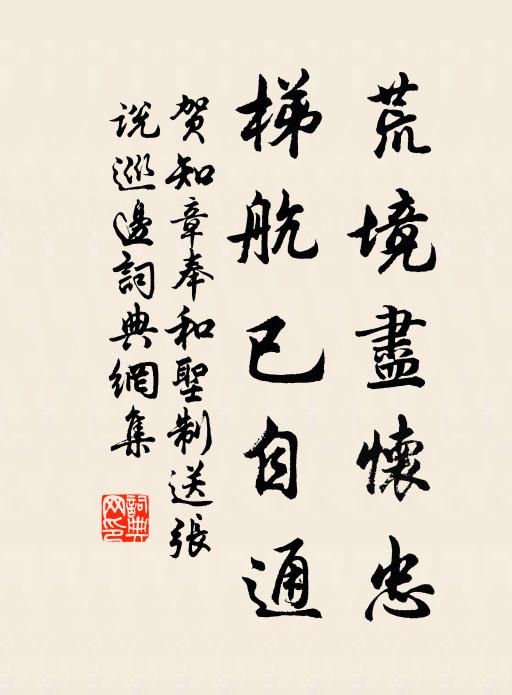 荒境盡懷忠
梯航已自通
贺知章奉和聖制送張
说巡邊詞典網集
詞典網印